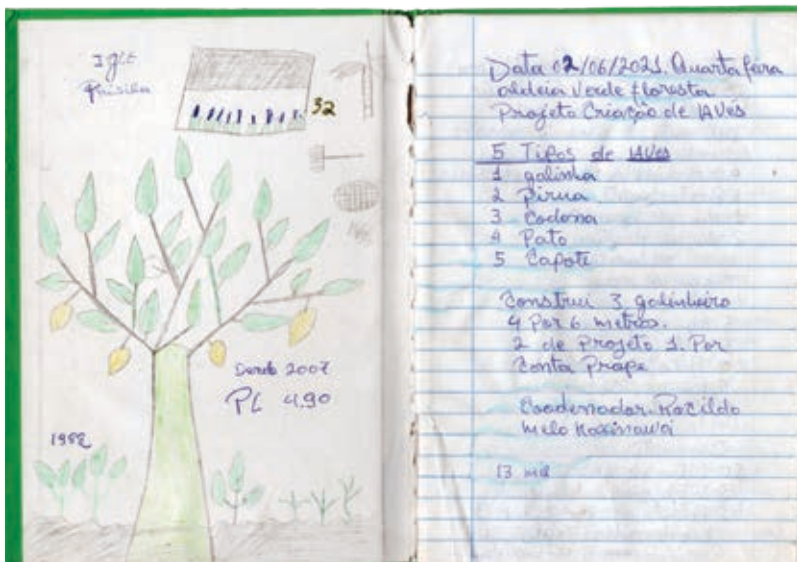 32
1982
PL 4.90
Data 02/06/2021. Quarta feira
aldeia Verde floresta.
Projeto Criação de AVes
5 Tipos de AVes
1 galinha
2 Pirua
3 Codona
4 Pato
5 Capote
Construi 3 galinheiro
4 Por 6 metros.
2 de Projeto 1. Por
Conta Prape
Coodenador. Rozildo
Melo Kaxinawai
13 mil